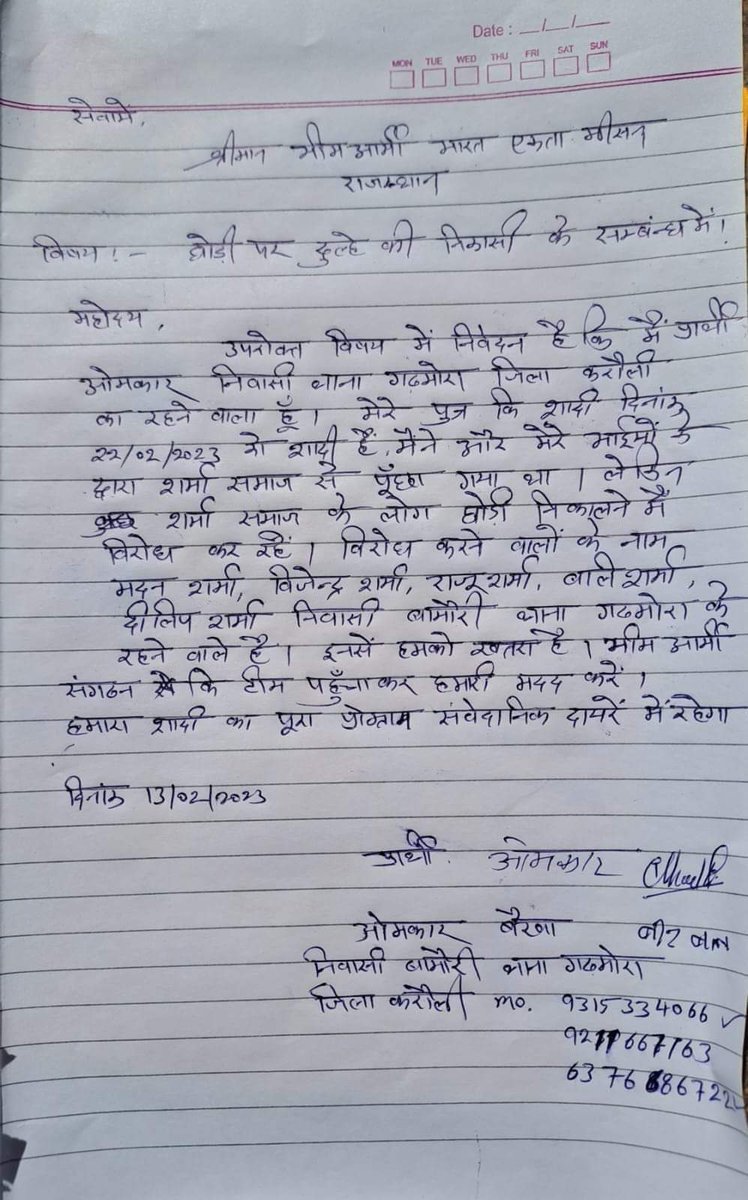 Date : __/__/__
MON TUE WED THU FRI SAT SUN
सेवामे,
श्रीमान भीम आर्मी भारत एकता मीसन
राजस्थान
विषय :- घोड़ी पर दुल्हे की निकासी के सम्बंध में।
महोदय,
उपरोक्त विषय में निवेदन है कि मैं प्रार्थी
ओमकार निवासी थाना गढमोरा जिला करौली
का रहने वाला हूँ। मेरे पुत्र कि शादी दिनांक
22/02/2023 को शादी हैं, मैने और मेरे भाईयों के
द्वारा शर्मा समाज से पूँछा गया था। लेकिन
शर्मा समाज के लोग घोड़ी निकालने में
विरोध कर रहें। विरोध करने वालों के नाम
मदन शर्मा, विजेन्द्र शर्मा, राजू शर्मा, बाले शर्मा,
दीलिप शर्मा निवासी बामौरी थाना गढमोरा के
रहने वाले है। इनसें हमको खतरा है। भीम आर्मी
संगठन कि टीम पहुँचा कर हमारी मदद करें।
हमारा शादी का पूरा प्रोग्राम संवेदानिक दायरें में रहेगा
दिनांक 13/02/2023
प्रार्थी. ओमकार
ओमकार बैरवा
निवासी बामौरी थाना गढमोरा
जिला करौली mo. 9315334066
6376686722